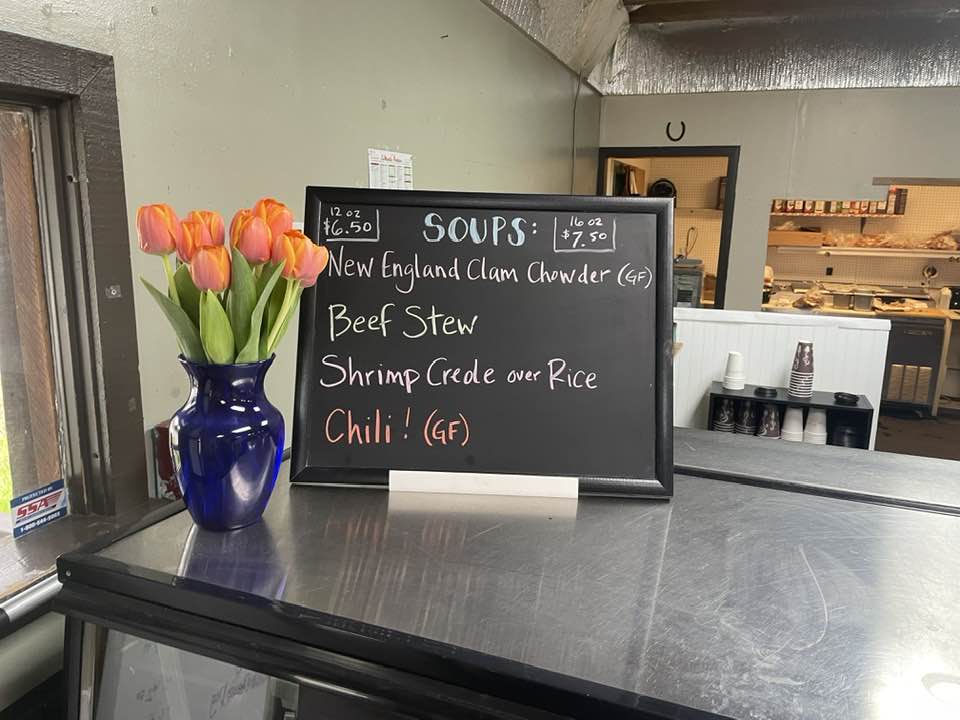 12 oz
$6.50
SOUPS:
16 oz
$7.50
New England Clam Chowder (GF)
Beef Stew
Shrimp Creole over Rice
Chili! (GF)
PROTECTED BY
SSA